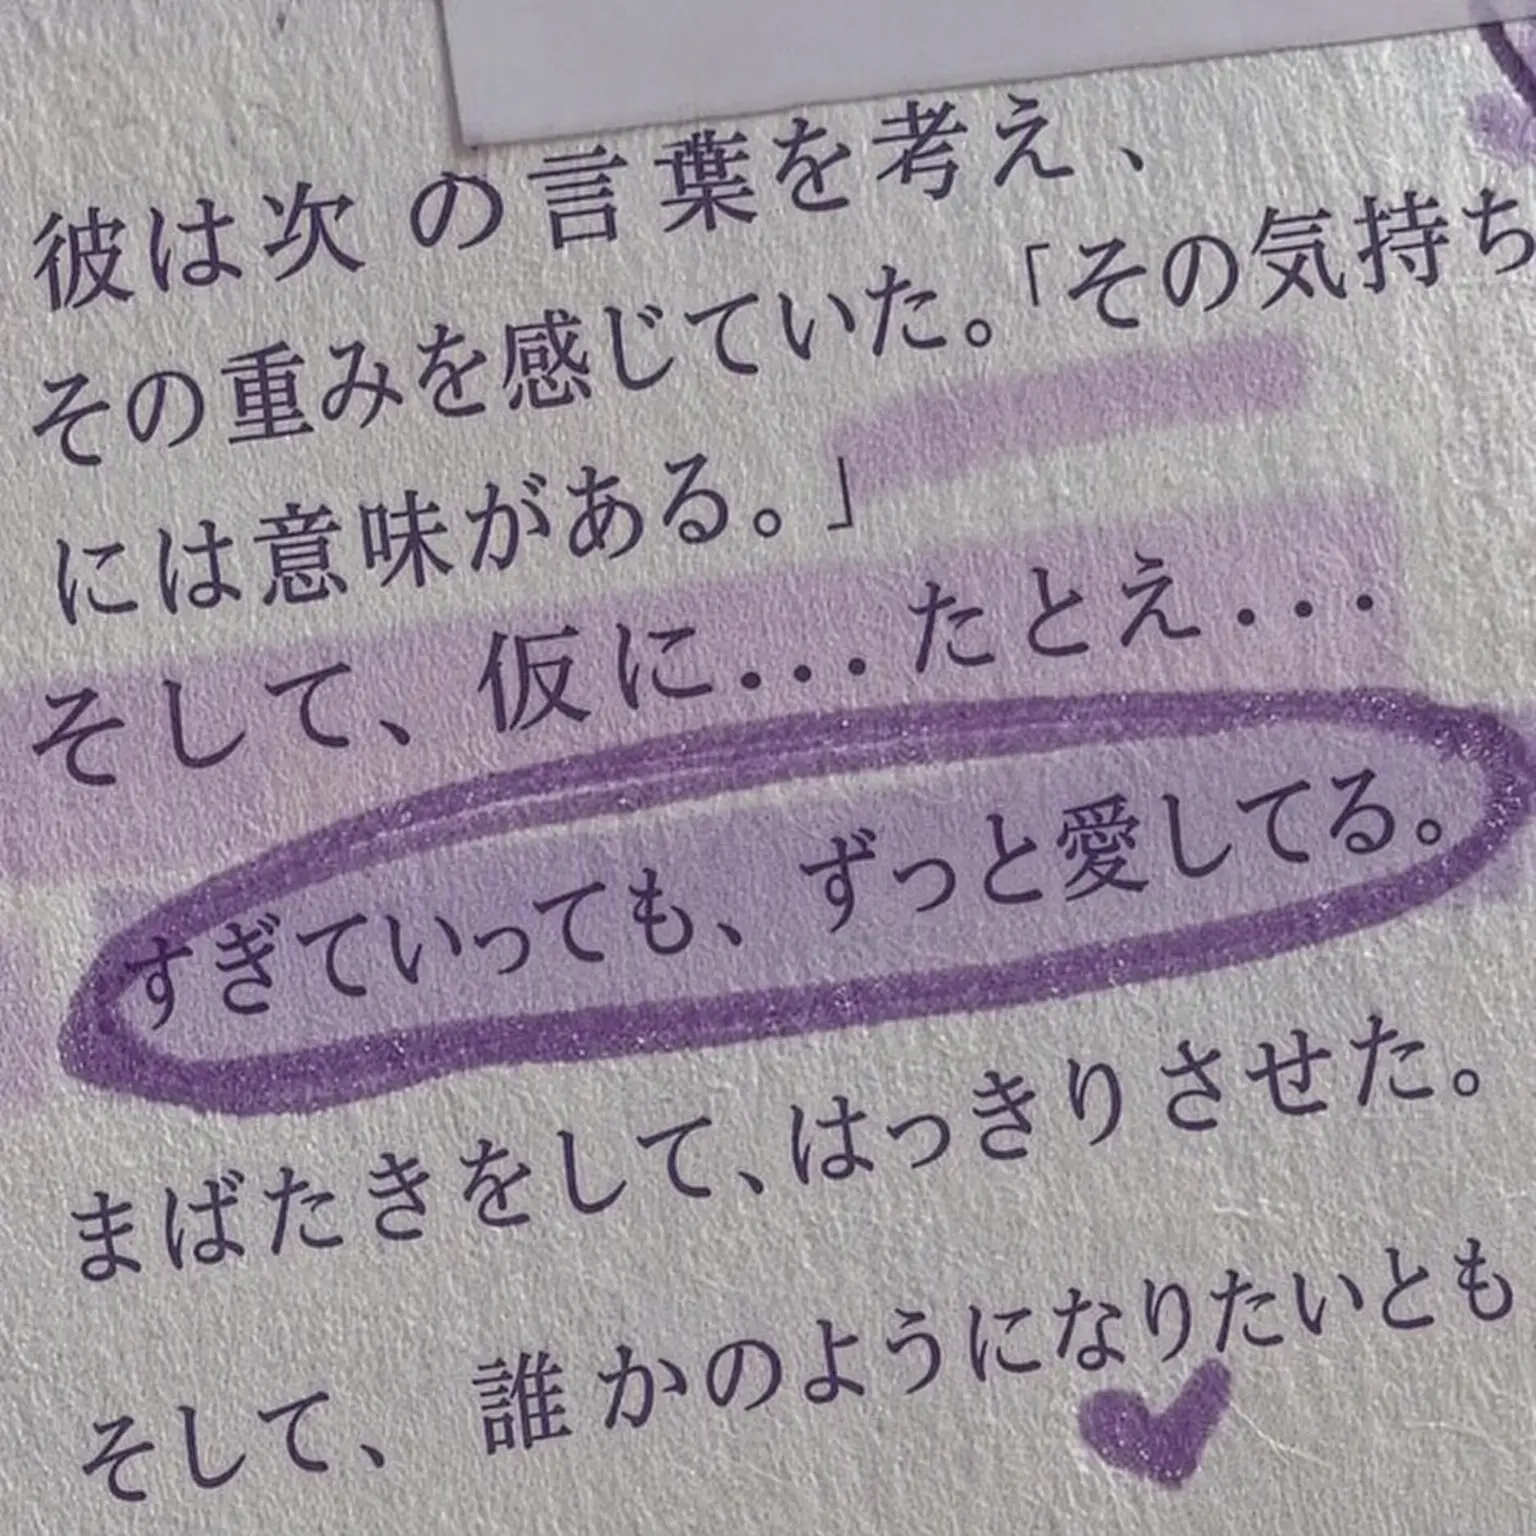 彼は次の言葉を考え、
その重みを感じていた。「その気持ち
には意味がある。」
そして、仮に...たとえ...
すぎていっても、ずっと愛してる。
まばたきをして、はっきりさせた。
そして、誰かのようになりたいとも